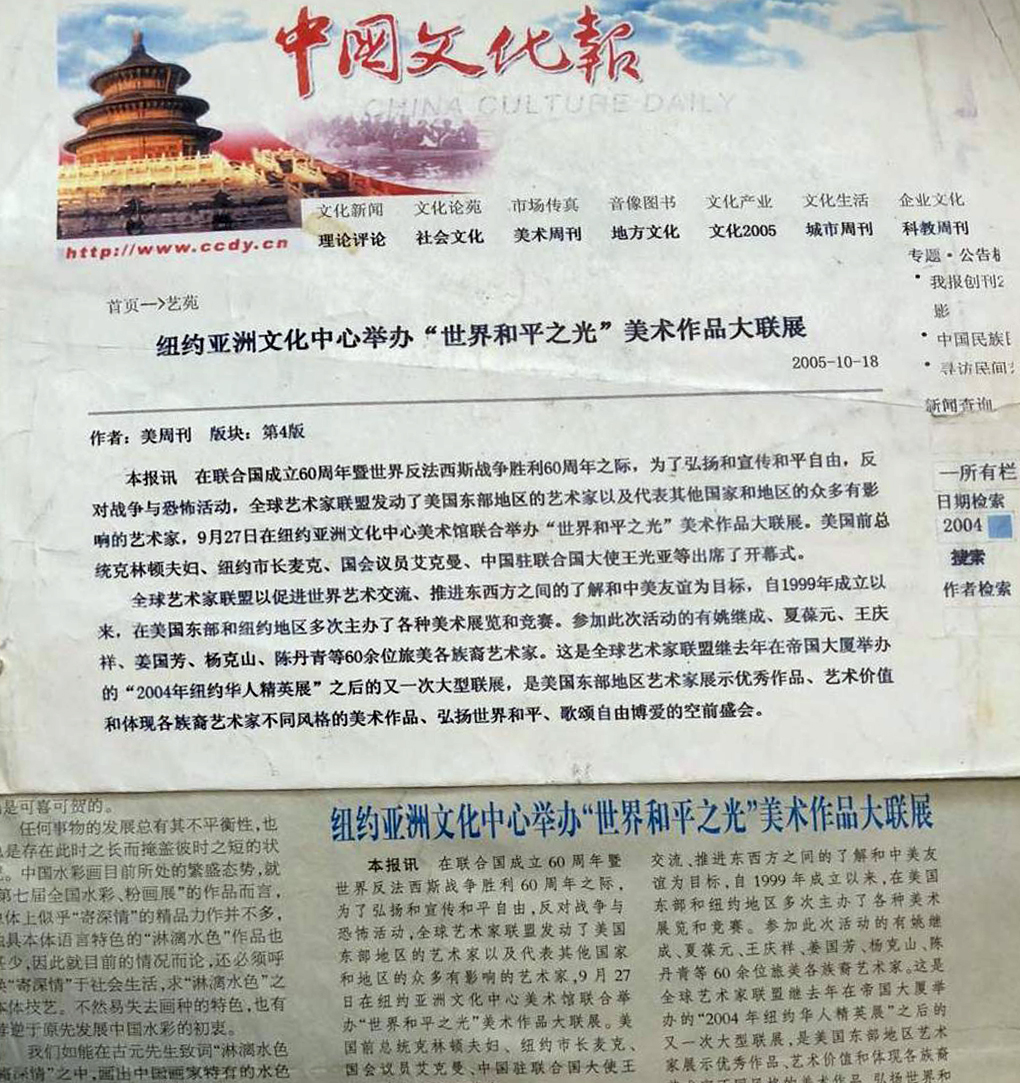 中国文化報
CHINA CULTURE DAILY
文化新闻 文化论苑 市场传真 音像图书 文化产业 文化生活 企业文化
理论评论 社会文化 美术周刊 地方文化 文化2005 城市周刊 科教周刊
http://www.ccdy.cn
专题·公告
• 我报创刊2
影
• 中国民族
• 寻访民间
新闻查询
一所有栏
日期检索
2004
搜索
作者检索
首页—>艺苑
纽约亚洲文化中心举办“世界和平之光”美术作品大联展
2005-10-18
作者：美周刊 版块：第4版
本报讯 在联合国成立60周年暨世界反法西斯战争胜利60周年之际，为了弘扬和宣传和平自由，反
对战争与恐怖活动，全球艺术家联盟发动了美国东部地区的艺术家以及代表其他国家和地区的众多有影
响的艺术家，9月27日在纽约亚洲文化中心美术馆联合举办“世界和平之光”美术作品大联展。美国前总
统克林顿夫妇、纽约市长麦克、国会议员艾克曼、中国驻联合国大使王光亚等出席了开幕式。
全球艺术家联盟以促进世界艺术交流、推进东西方之间的了解和中美友谊为目标，自1999年成立以
来，在美国东部和纽约地区多次主办了各种美术展览和竞赛。参加此次活动的有姚继成、夏葆元、王庆
祥、姜国芳、杨克山、陈丹青等60余位旅美各族裔艺术家。这是全球艺术家联盟继去年在帝国大厦举办
的“2004年纽约华人精英展”之后的又一次大型联展，是美国东部地区艺术家展示优秀作品、艺术价值
和体现各族裔艺术家不同风格的美术作品、弘扬世界和平、歌颂自由博爱的空前盛会。
是可喜可贺的。
任何事物的发展总有其不平衡性，也
是存在此时之长而掩盖彼时之短的状
。中国水彩画目前所处的繁盛态势，就
第七届全国水彩、粉画展”的作品而言，
体上似乎“寄深情”的精品力作并不多，
具本体语言特色的“淋漓水色”作品也
少，因此就目前的情况而论，还必须呼
“寄深情”于社会生活，求“淋漓水色”之
本体技艺。不然易失去画种的特色，也有
逆于原先发展中国水彩的初衷。
我们如能在古元先生致词“淋漓水色
寄深情”之中，画出中国画家特有的水色
纽约亚洲文化中心举办“世界和平之光”美术作品大联展
本报讯 在联合国成立 60 周年暨
世界反法西斯战争胜利 60 周年之际，
为了弘扬和宣传和平自由，反对战争与
恐怖活动，全球艺术家联盟发动了美国
东部地区的艺术家以及代表其他国家
和地区的众多有影响的艺术家，9 月 27
日在纽约亚洲文化中心美术馆联合举
办“世界和平之光”美术作品大联展。美
国前总统克林顿夫妇、纽约市长麦克、
国会议员艾克曼、中国驻联合国大使王
交流、推进东西方之间的了解和中美友
谊为目标，自 1999 年成立以来，在美国
东部和纽约地区多次主办了各种美术
展览和竞赛。参加此次活动的有姚继
成、夏葆元、王庆祥、姜国芳、杨克山、陈
丹青等 60 余位旅美各族裔艺术家。这是
全球艺术家联盟继去年在帝国大厦举
办的“2004 年纽约华人精英展”之后的
又一次大型联展，是美国东部地区艺术
家展示优秀作品、艺术价值和体现各族裔